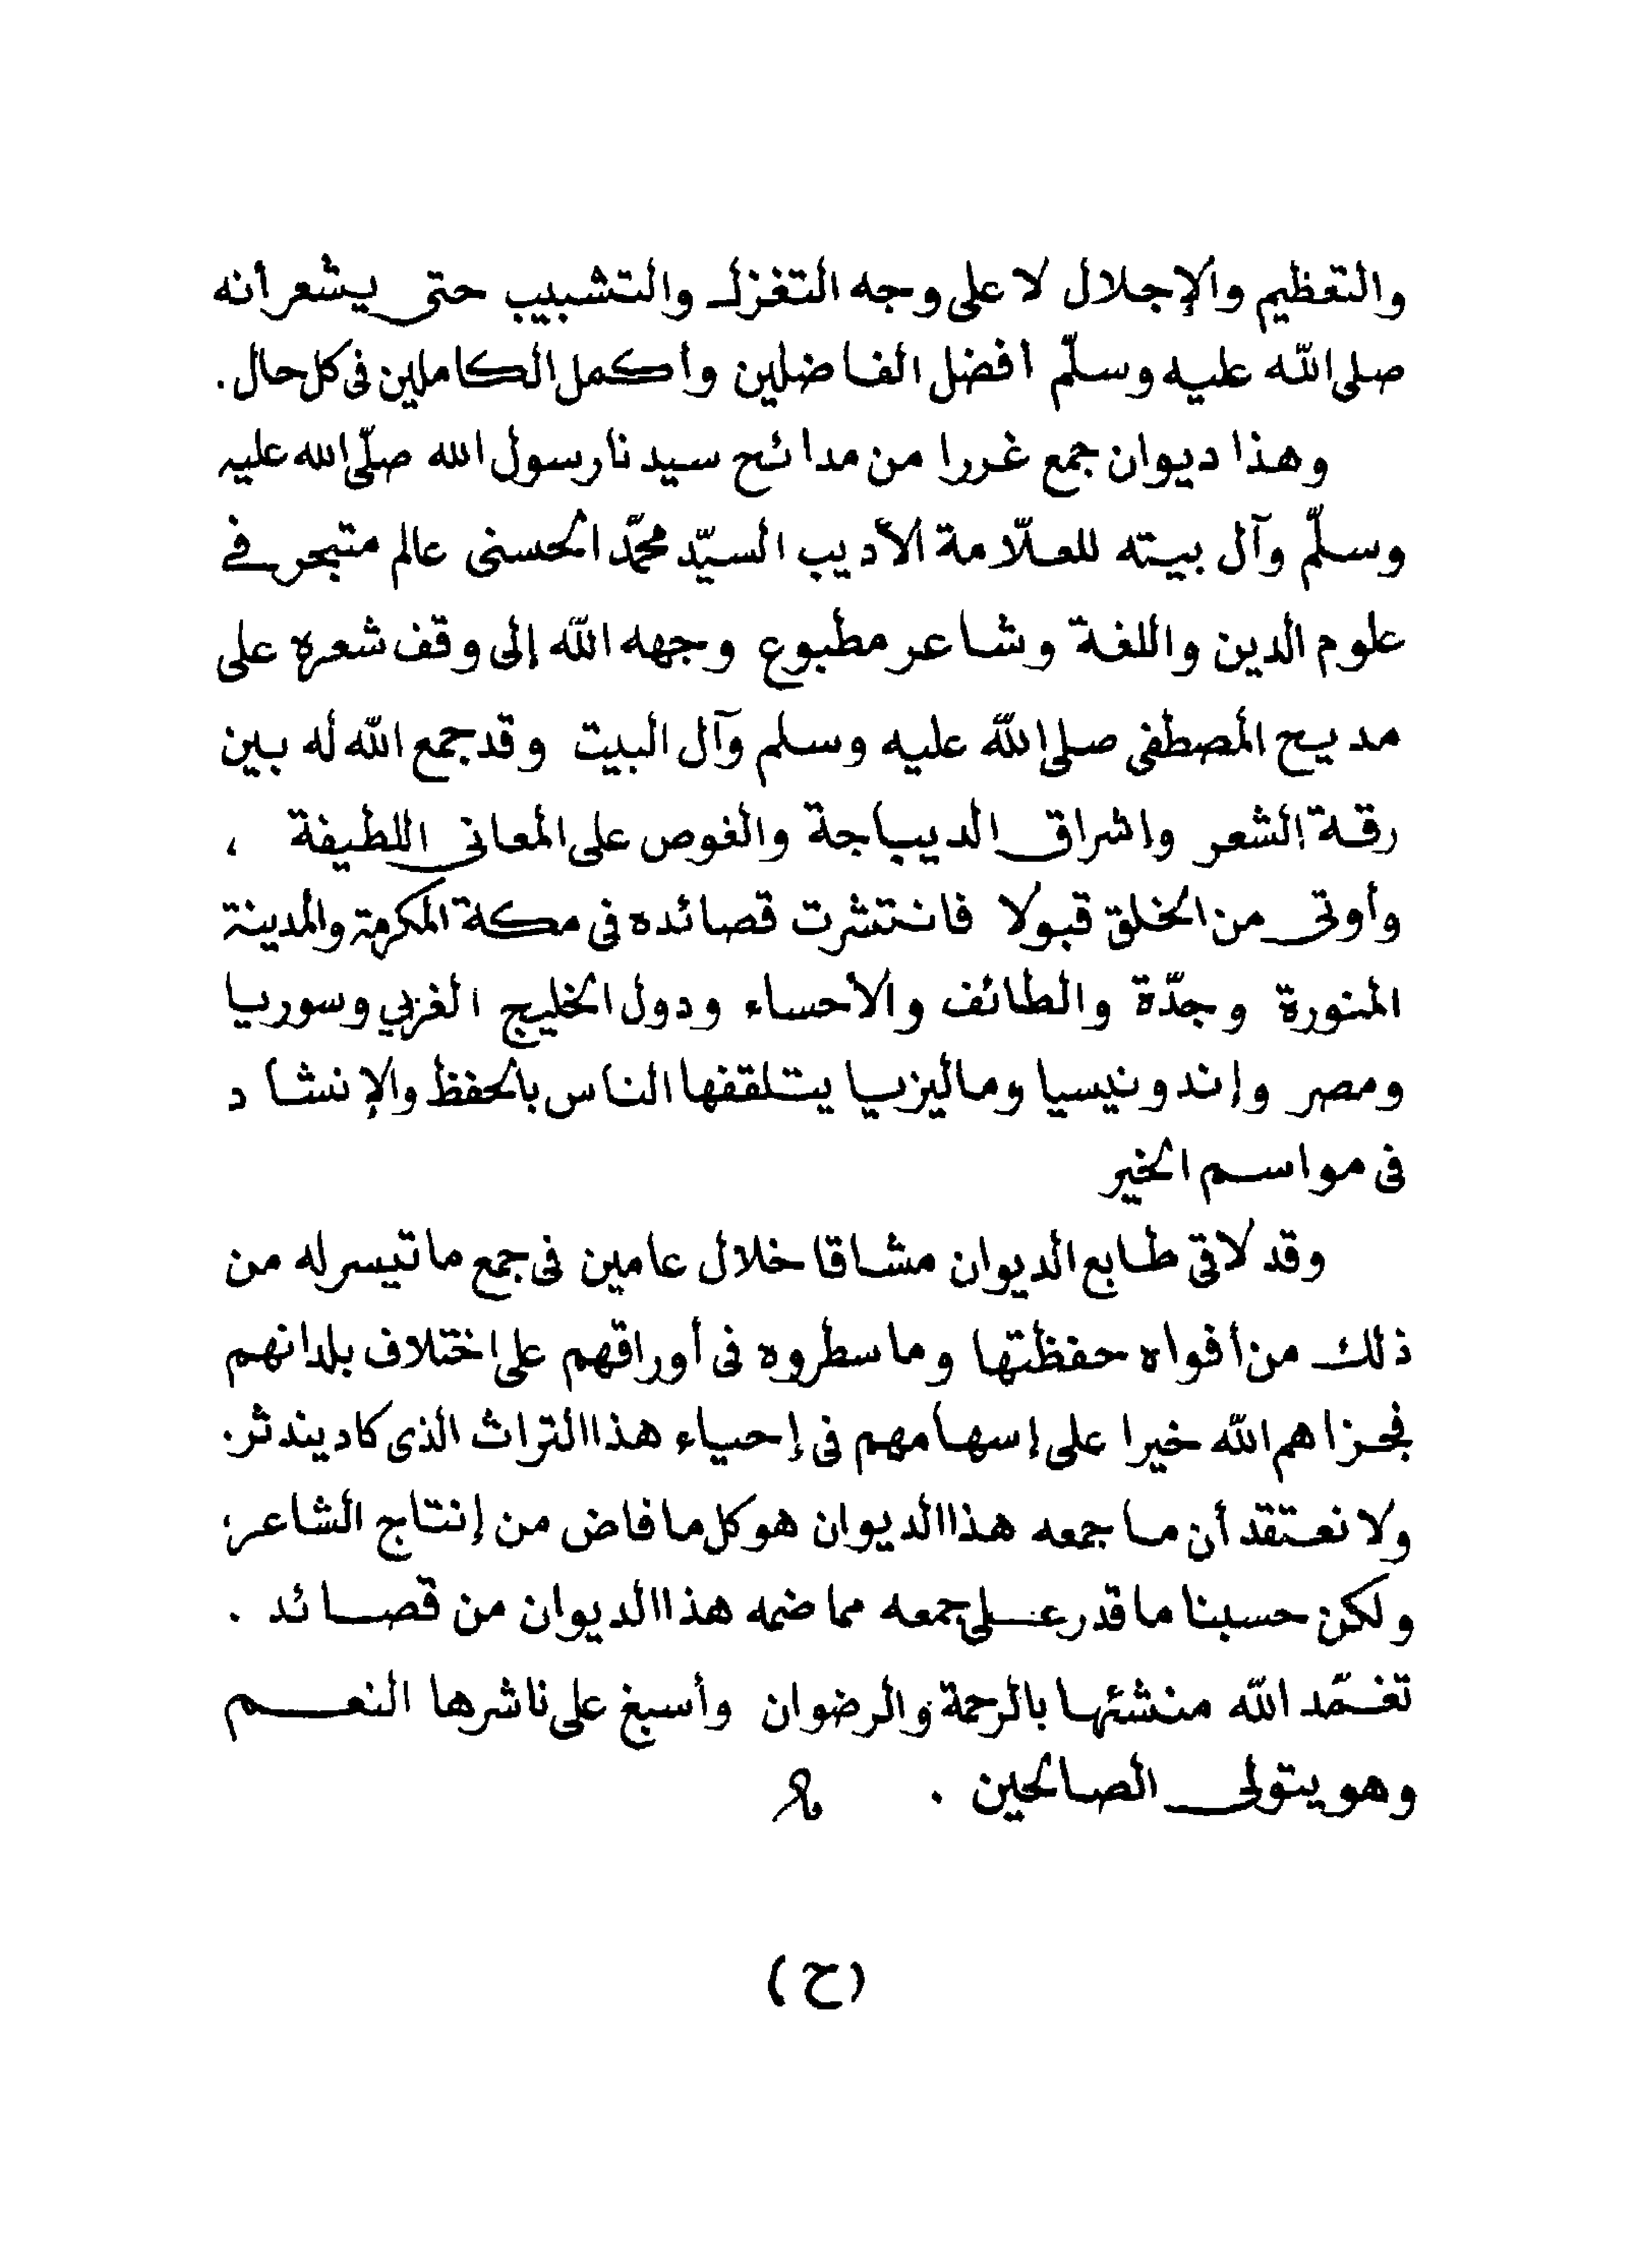 والتعظيم والإجلال لا على وجه التغزل والتشبيب حتى يشعر أنه
صلى الله عليه وسلّم أفضل الفاضلين وأكمل الكاملين فى كل حال .
وهذا ديوان جمع غررا من مدائح سيدنا رسول الله صلّى الله عليه
وسلّم وآل بيته للعلّامة الأديب السيّد محمّد الحسنى عالم متبحر فى
علوم الدين واللغة وشاعر مطبوع وجهه الله إلى وقف شعره على
مديح المصطفى صلى الله عليه وسلم وآل البيت وقد جمع الله له بين
رقة الشعر وإشراق الديباجة والغوص على المعانى اللطيفة ،
وأوتى من الخلق قبولا فانتشرت قصائده فى مكة المكرمة والمدينة
المنورة وجدّة والطائف والأحساء ودول الخليج العربي وسوريا
ومصر وإندونيسيا وماليزيا يتلقفها الناس بالحفظ والإنشاد
فى مواسم الخير
وقد لاقى طابع الديوان مشاقا خلال عامين فى جمع ما تيسر له من
ذلك من أفواه حفظتها وما سطروه فى أوراقهم على اختلاف بلدانهم
فجزاهم الله خيرا على إسهامهم فى إحياء هذا التراث الذى كاد يندثر .
ولا نعتقد أن ما جمعه هذا الديوان هو كل ما فاض من إنتاج الشاعر ؛
ولكن حسبنا ما قدر على جمعه مما ضمه هذا الديوان من قصائد .
تغمّد الله منشئها بالرحمة والرضوان وأسبغ على ناشرها النعم
وهو يتولى الصالحين .
(ح)